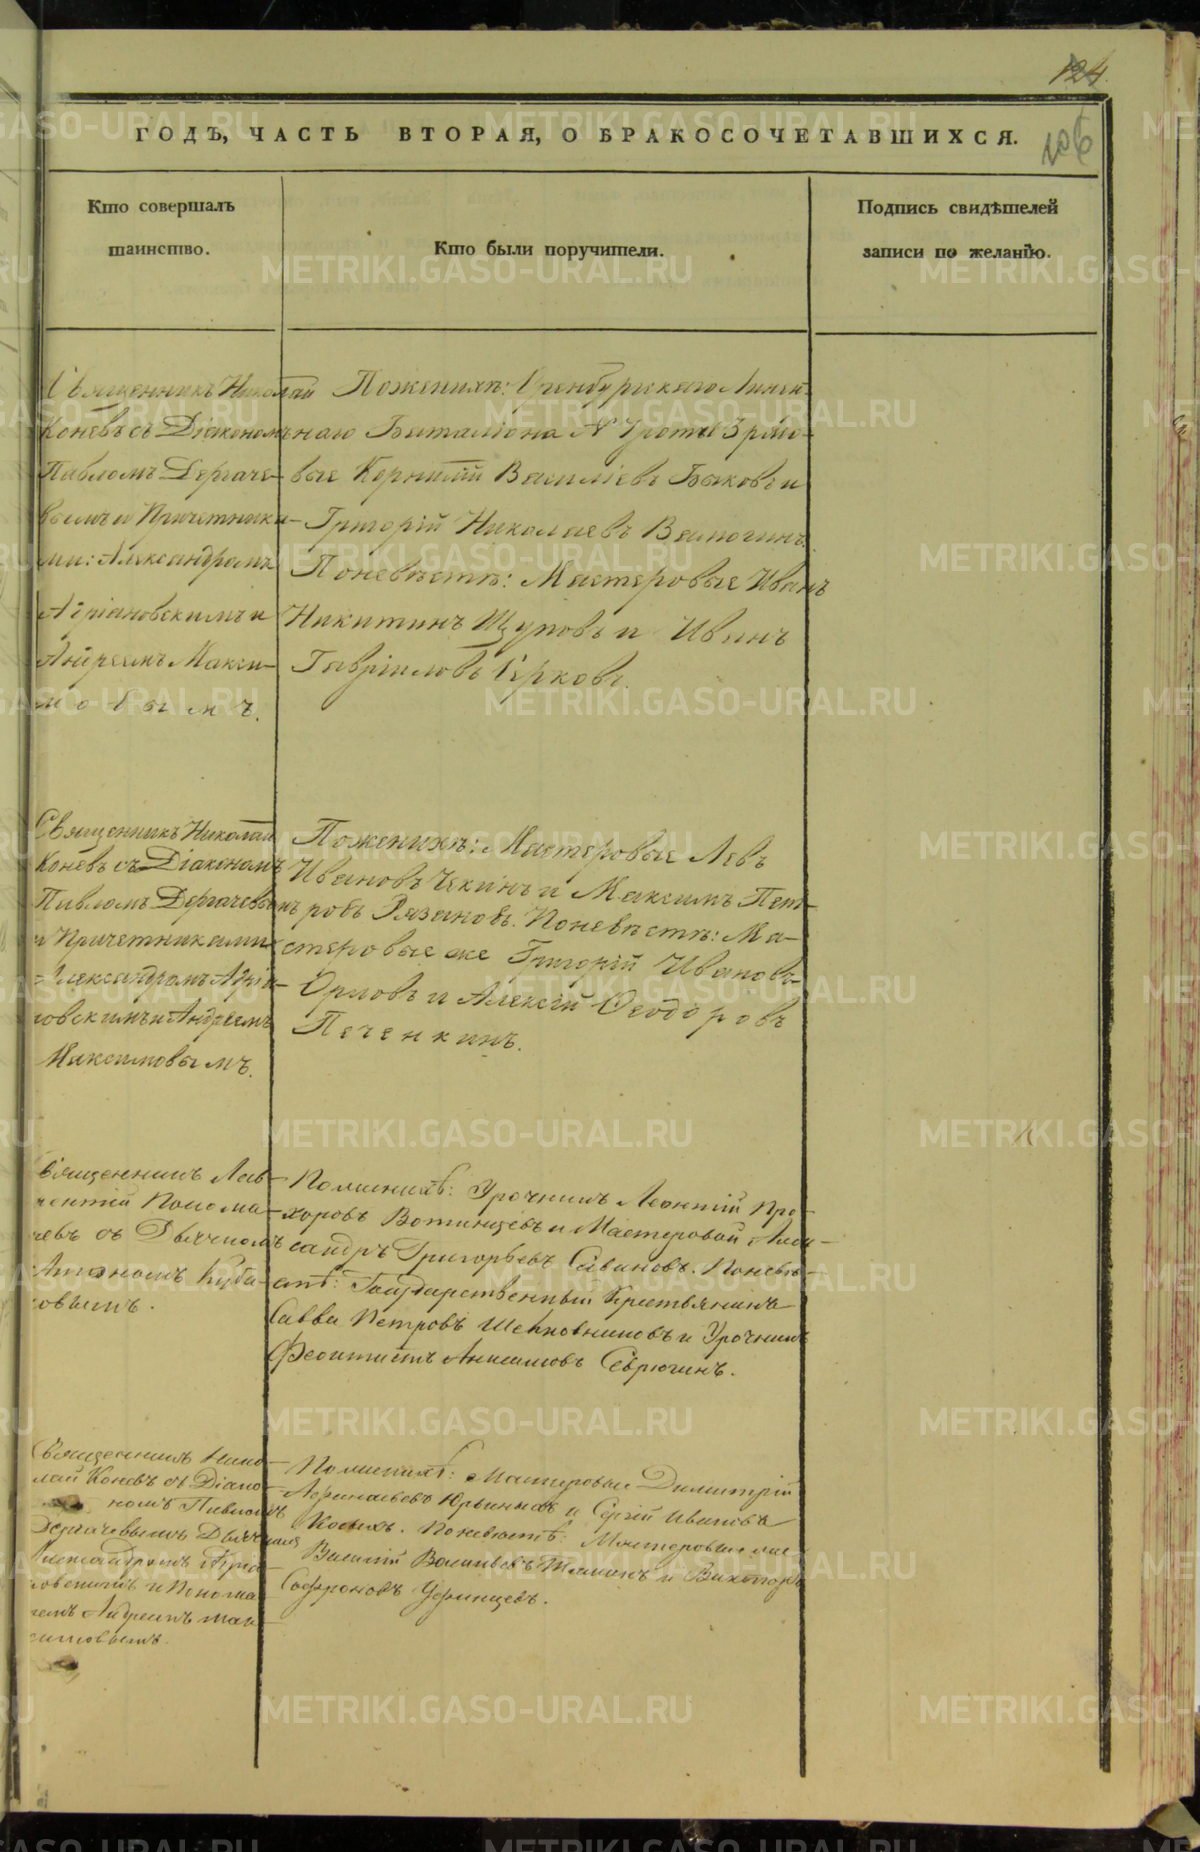 124.
ГОДЪ, ЧАСТЬ ВТОРАЯ, О БРАКОСОЧЕТАВШИХСЯ.
106
Кто совершалъ
таинство.
Кто были поручители.
Подпись свидѣтелей
записи по желанію.
Священникъ Николай
Коневъ съ Діакономъ
Павломъ Дергаче-
вымъ и Причетника-
ми: Александромъ
Адріановскимъ и
Андреемъ Макси-
мовымъ.
По женихѣ: Оренбургскаго Линей-
наго Баталіона № роты рядо-
вые Корнилій Василіевъ Быковъ и
Григорій Николаевъ Ванюгинъ.
По невѣстѣ: Мастеровые Иванъ
Никитинъ Щуповъ и Иванъ
Гавріиловъ Серковъ.
Священникъ Николай
Коневъ съ Діакономъ
Павломъ Дергачевымъ
и Причетниками
Александромъ Адріа-
новскимъ и Андреемъ
Максимовымъ.
По женихѣ: Мастеровые Левъ
Ивановъ Чекинъ и Максимъ Пет-
ровъ Рязановъ. По невѣстѣ: Ма-
стеровые же Григорій Ивановъ
Орловъ и Алексій Ѳеодоровъ
Печенкинъ.
Священникъ Лав-
рентій Понома-
ревъ съ Дьячкомъ
овымъ.
По женихѣ: Урочникъ Леонтій Про-
хоровъ Вотинцевъ и Мастеровой Алек-
сандръ Григорьевъ Савиновъ. По невѣ-
стѣ: Государственный Крестьянинъ
Савва Петровъ Шелковниковъ и Урочникъ
Феоктистъ Анисимовъ Севрюгинъ.
Священникъ Нико-
лай Коневъ съ Діако-
номъ Павломъ
Дергачевымъ Дьячкомъ
Александромъ Адріа-
новскимъ и Понома-
ремъ Андреемъ Мак-
симовымъ.
По женихѣ: Мастеровые Димитрій
Юрьиныхъ и Сергій Ивановъ
Косыхъ. По невѣстѣ: Мастеровые же
Василій Васильевъ и Викторъ
Софроновъ Уфинцевъ.
METRIKI.GASO-URAL.RU